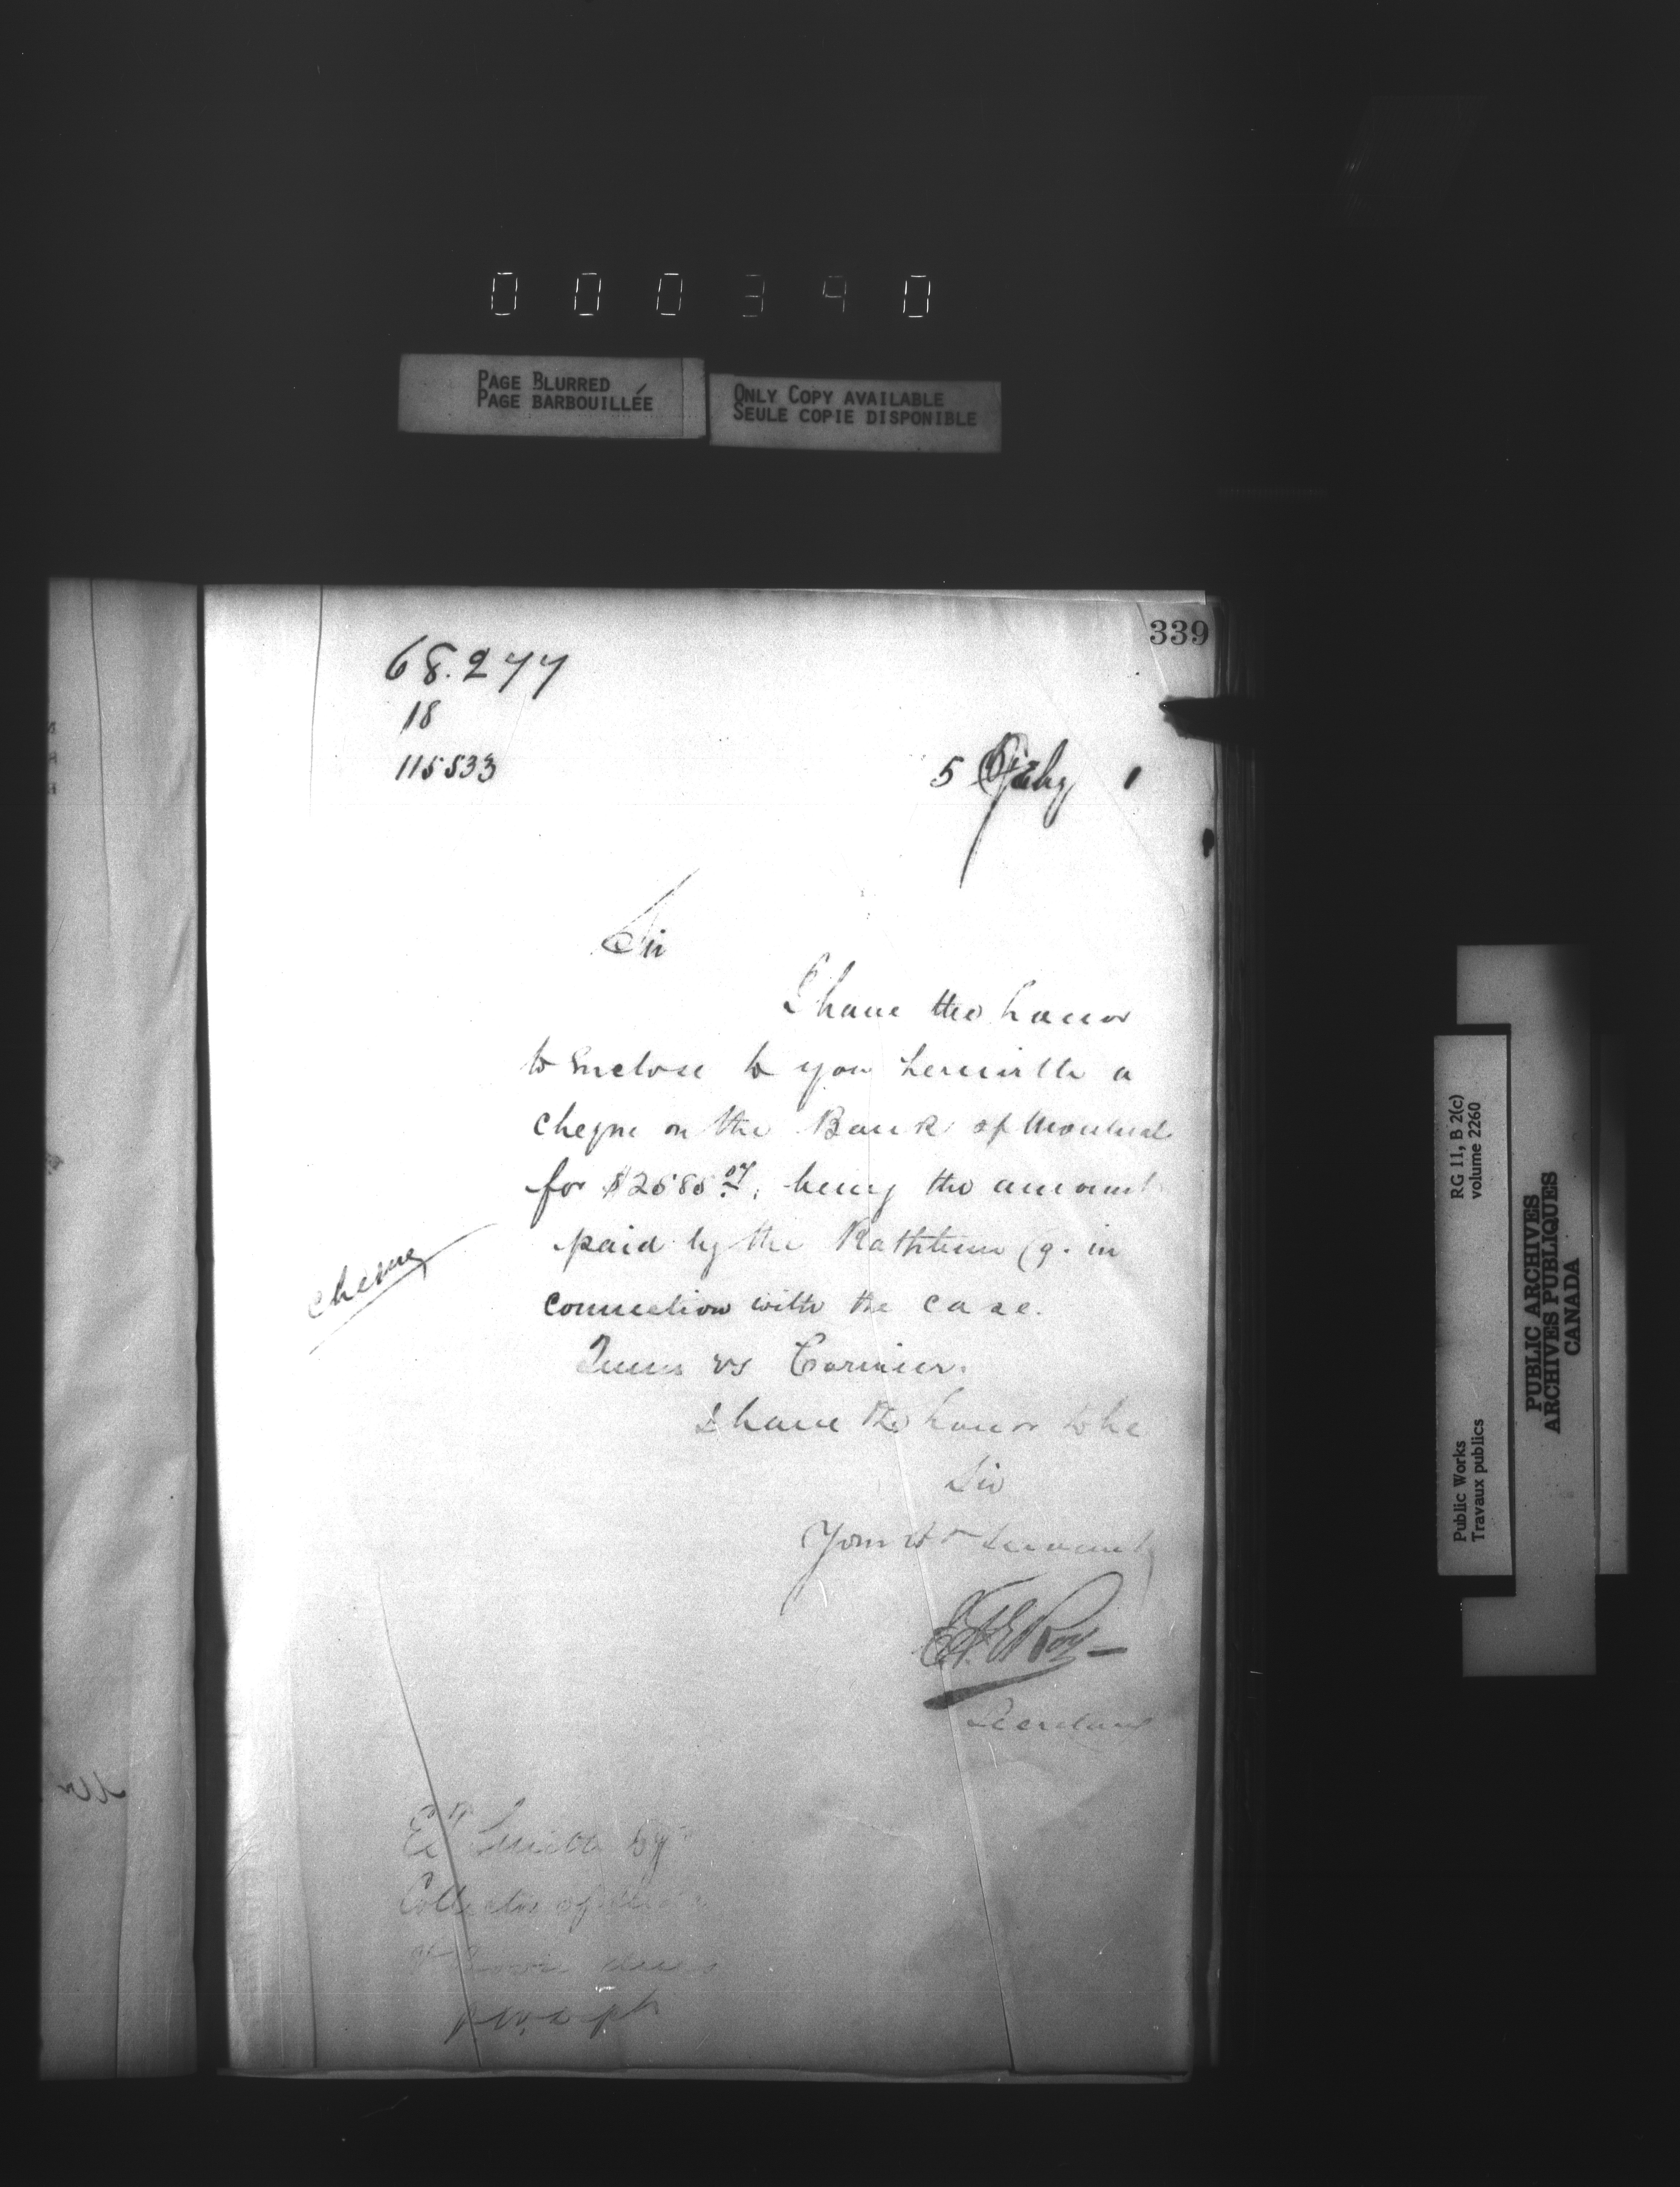 0 0 0 3 4 0
PAGE BLURRED
PAGE BARBOUILLÉE
ONLY COPY AVAILABLE
SEULE COPIE DISPONIBLE
339
68.277
18
115533
5 Feby 1
Sir
I have the honor
to enclose to you herewith a
cheque on the Bank of Montreal
for $2585.07, being the amount
paid by the Rathbun Co. in
cheque
connection with the case.
Queen vs Cormier.
I have the honor to be
Sir
Your obt Servant
E.F.E. Roy
Secretary
Ed Smith Esq
Collector of
dues
RG 11, B 2(c)
volume 2260
Public Works
Travaux publics
PUBLIC ARCHIVES
ARCHIVES PUBLIQUES
CANADA